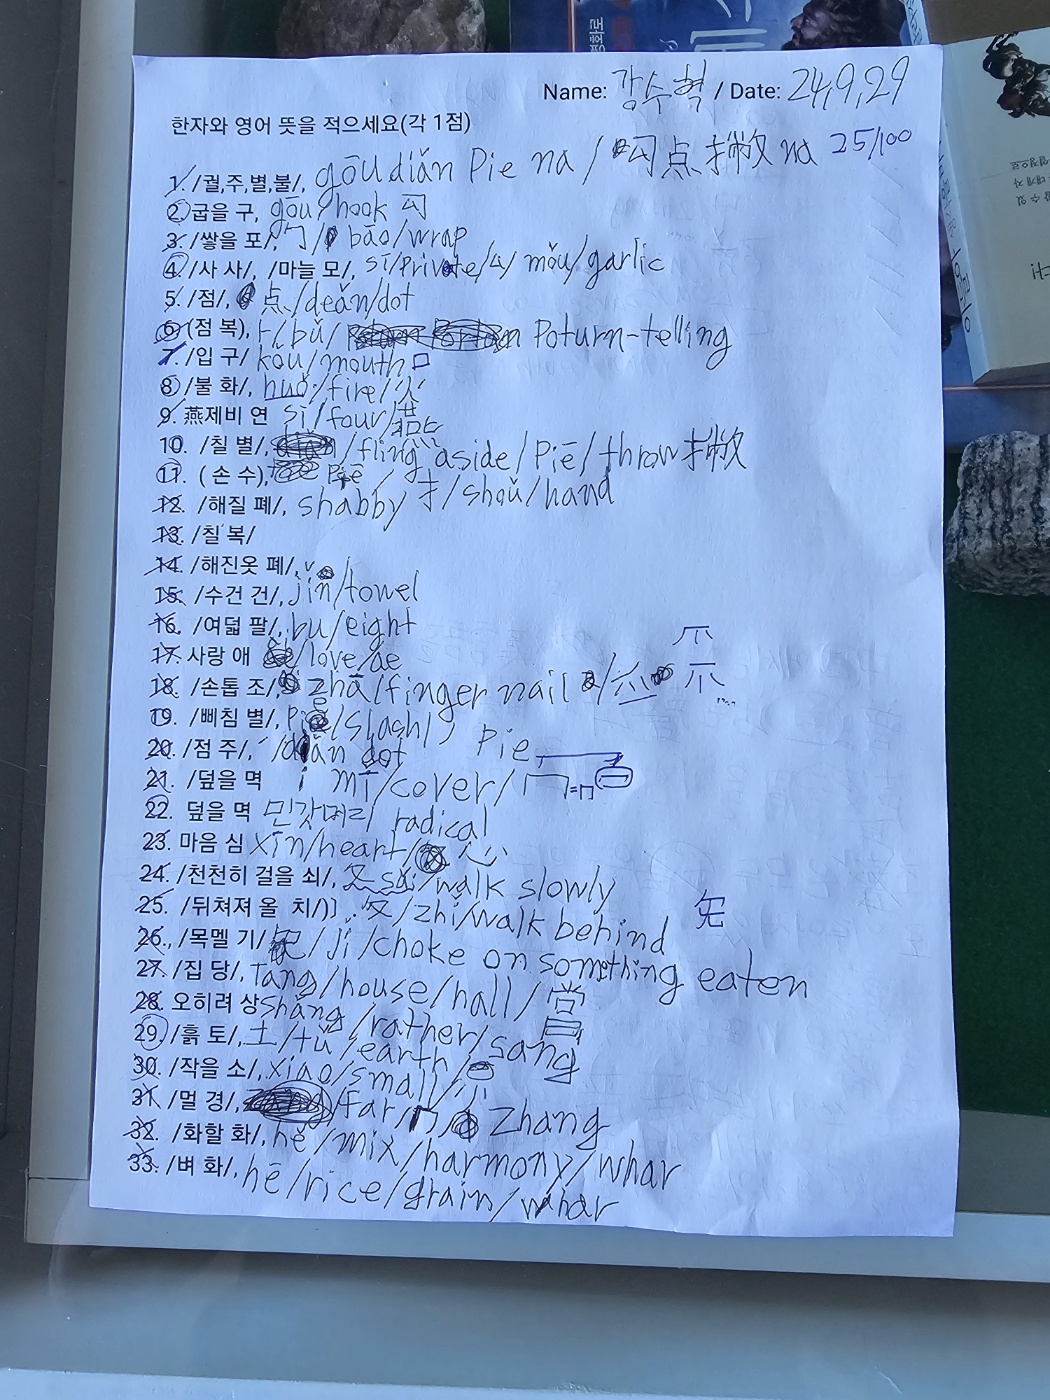 Name: 강수혁 / Date: 24,9,29
한자와 영어 뜻을 적으세요(각 1점)
25/100
1. /궐,주,별,불/, gōu diǎn Pie na / 勾点撇 na
2. 굽을 구, gōu/hook 勾
3. /쌓을 포/, 勹/bāo/wrap
4. /사 사/, /마늘 모/, sī/Private/厶/mǒu/garlic
5. /점/, 点/deǎn/dot
6. (점 복), 卜/bǔ/ Poturn-telling
7. /입 구/ kǒu/mouth 口
8. /불 화/, huǒ/fire/火
9. 燕제비 연 sì/four/燕
10. /칠 별/, /fling aside/Piē/throw 撇
11. ( 손 수), Piē
12. /해질 폐/, shabby 扌/shǒu/hand
13. /칠 복/
14. /해진옷 폐/,
15. /수건 건/, jīn/towel
16. /여덟 팔/, bu/eight
17. 사랑 애 /love/ae
18. /손톱 조/, zhǎ/finger nail 爪
19. /삐침 별/, Pie/slash/
Pie
20. /점 주/, /diǎn dot
21. /덮을 멱 mì/cover/冖
22. 덮을 멱 민갓머리 radical
23. 마음 심 xīn/heart/心
24. /천천히 걸을 쇠/, 夊 suī/walk slowly
25. /뒤쳐져 올 치/)] 夂/zhǐ/walk behind
26., /목멜 기/ /jì/choke on something eaten
27. /집 당/, Táng/house/hall/
28. 오히려 상 shàng/rather/sang
29. /흙 토/, 土/tǔ/earth
30. /작을 소/, xiao/small/小
31. /멀 경/, /far/冂 Zhang
32. /화할 화/, hé/mix/harmony/whar
33. /벼 화/, hē/rice/grain/whar